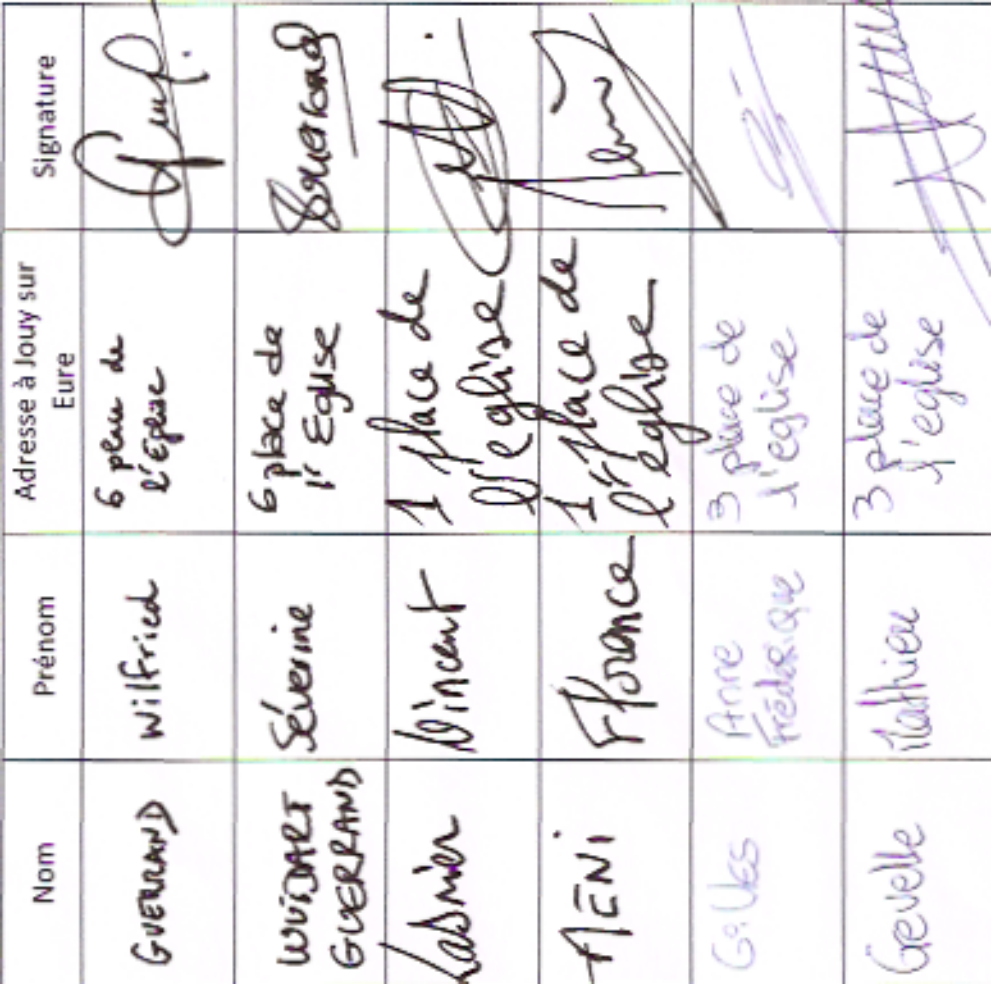 Nom Prénom Adresse à Jouy sur Eure Signature
GUERRAND Wilfried 6 place de l'Eglise
WUIDART GUERRAND Séverine 6 place de l'Eglise Guerrand
Ladmier Vincent 1 place de l'eglise
AENI Florence 1 place de l'église
Gilles Anne Frédérique 3 place de l'eglise
Gevelle Mathieu 3 place de l'eglise